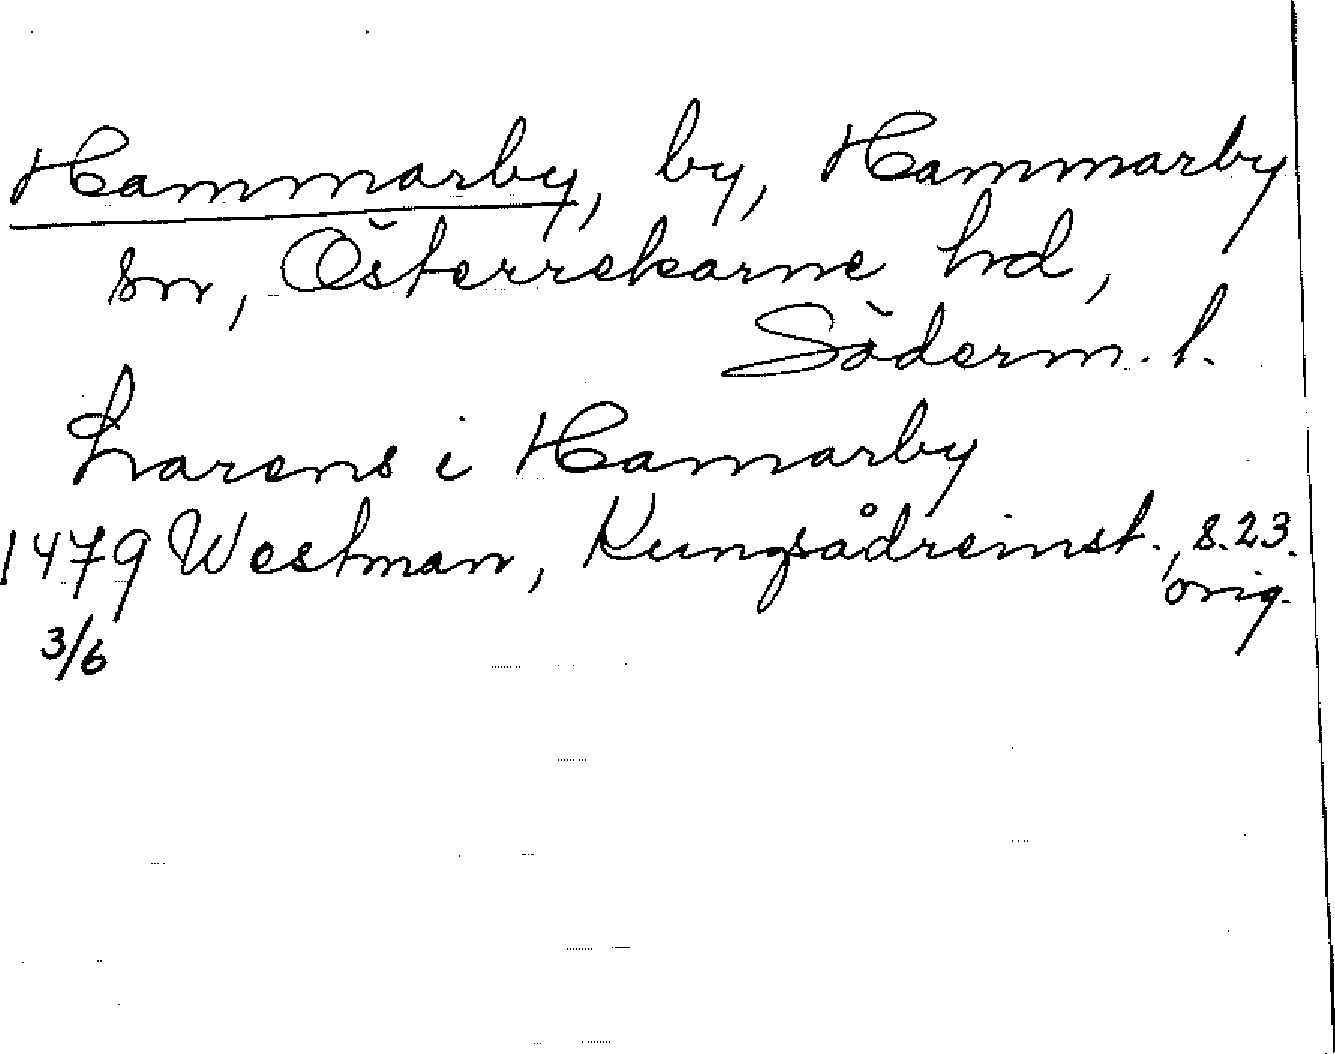 Hammarby, by, Hammarby
sn, Österrekarne hd,
Söderm. l.
Larens i Hamarby
1479 Westman, Kungsådreinst., s. 23.
3/6 orig.